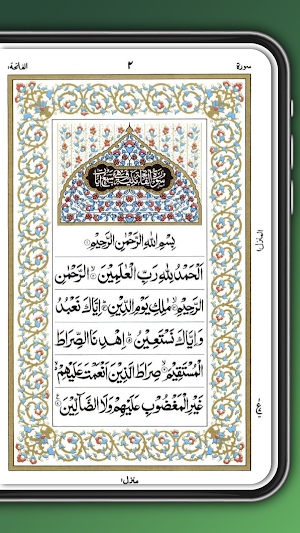 سورة ٢ الفاتحة
بِسْمِ اللهِ الرَّحْمٰنِ الرَّحِيْمِ
اَلْحَمْدُ لِلّٰهِ رَبِّ الْعٰلَمِيْنَ الرَّحْمٰنِ
الرَّحِيْمِ مٰلِكِ يَوْمِ الدِّيْنِ اِيَّاكَ نَعْبُدُ
وَاِيَّاكَ نَسْتَعِيْنُ اِهْدِنَا الصِّرَاطَ
الْمُسْتَقِيْمَ صِرَاطَ الَّذِيْنَ اَنْعَمْتَ عَلَيْهِمْ
غَيْرِ الْمَغْضُوْبِ عَلَيْهِمْ وَلَا الضَّآلِّيْنَ